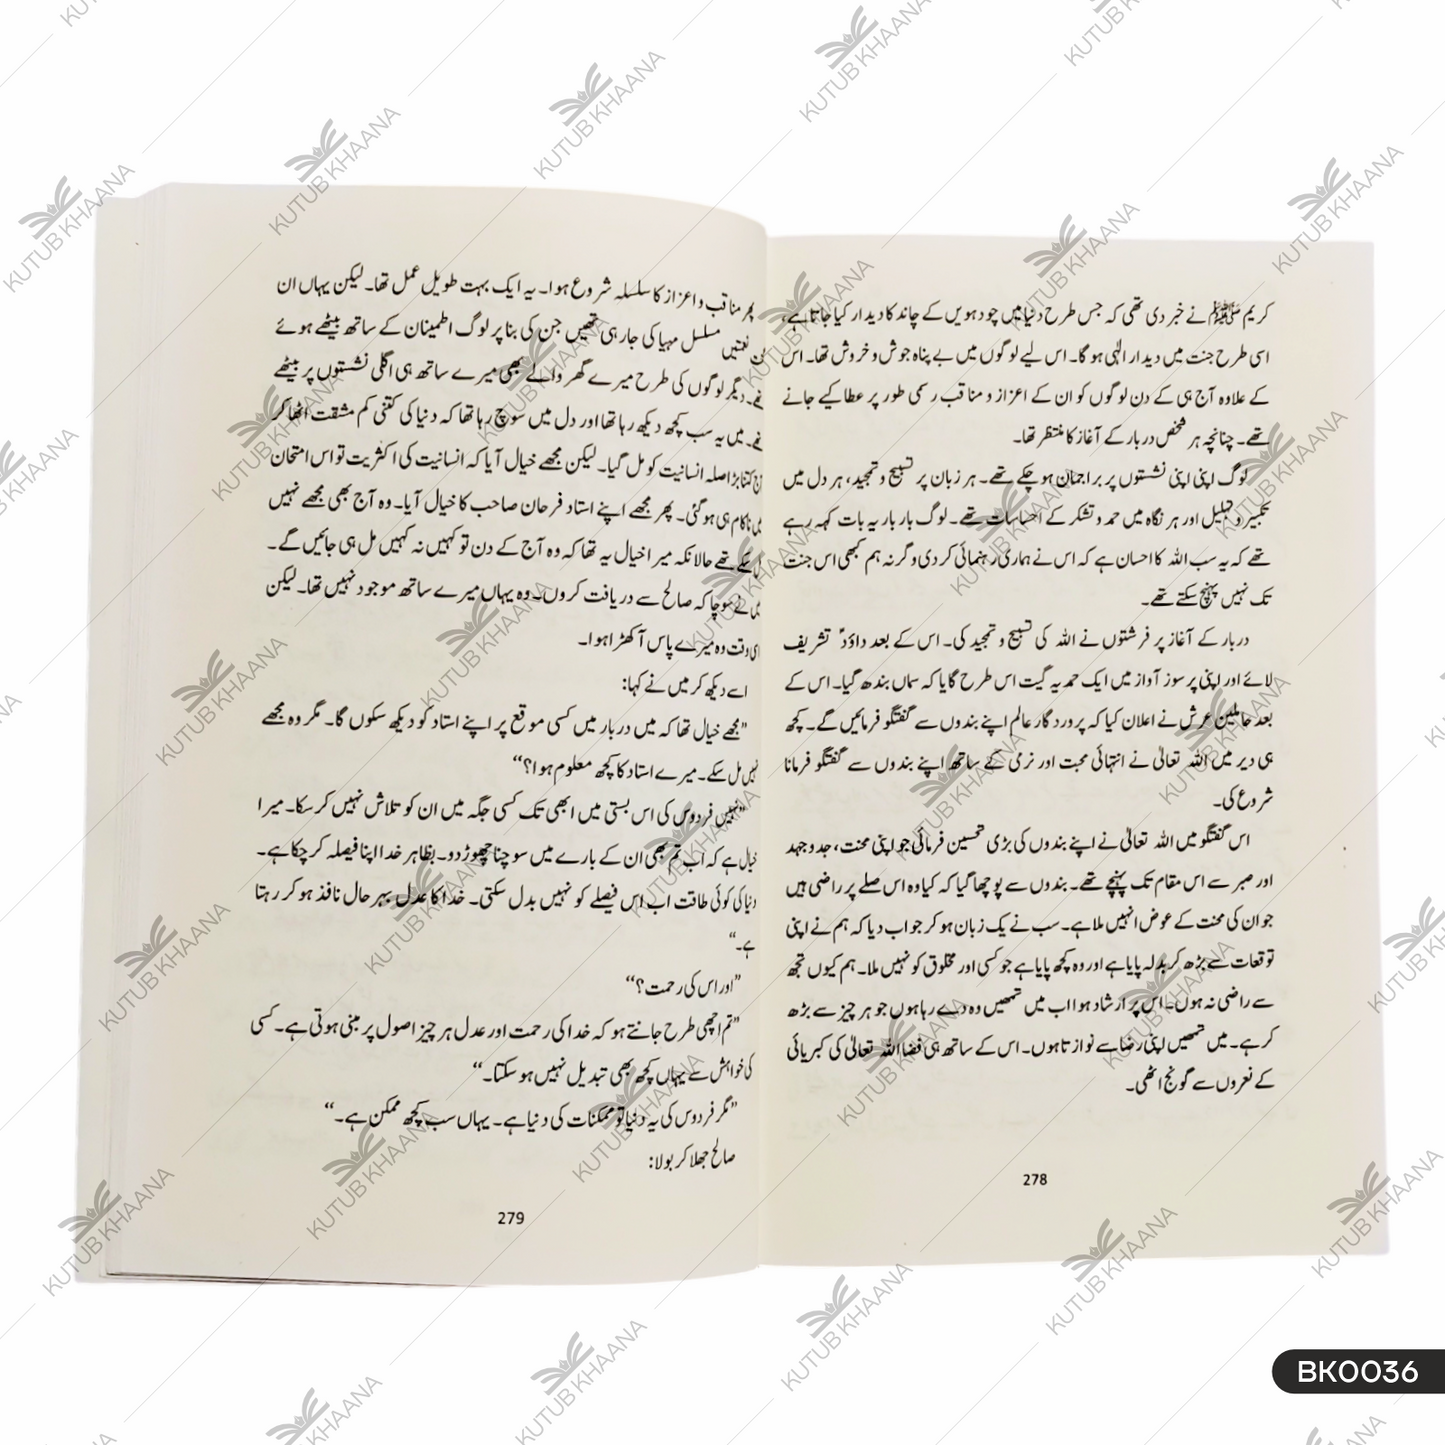 کریم ﷺ نے خبر دی تھی کہ جس طرح دنیا میں چودہویں کے چاند کا دیدار کیا جاتا ہے،
اسی طرح جنت میں دیدار الٰہی ہو گا۔ اس لیے لوگوں میں بے پناہ جوش و خروش تھا۔ اس
کے علاوہ آج ہی کے دن لوگوں کو ان کے اعزاز و مناقب رسمی طور پر عطا کیے جانے
تھے۔ چنانچہ ہر شخص دربار کے آغاز کا منتظر تھا۔
لوگ اپنی اپنی نشستوں پر براجمان ہو چکے تھے۔ ہر زبان پر تسبیح و تمجید، ہر دل میں
تکبیر و تہلیل اور ہر نگاہ میں حمد و تشکر کے احساسات تھے۔ لوگ بار بار یہ بات کہہ رہے
تھے کہ یہ سب اللہ کا احسان ہے کہ اس نے ہماری رہنمائی کر دی وگرنہ ہم کبھی اس جنت
تک نہیں پہنچ سکتے تھے۔
دربار کے آغاز پر فرشتوں نے اللہ کی تسبیح و تمجید کی۔ اس کے بعد داؤدؑ تشریف
لائے اور اپنی پرسوز آواز میں ایک حمدیہ گیت اس طرح گایا کہ سماں بندھ گیا۔ اس کے
بعد حاملین عرش نے اعلان کیا کہ پروردگار عالم اپنے بندوں سے گفتگو فرمائیں گے۔ کچھ
ہی دیر میں اللہ تعالیٰ نے انتہائی محبت اور نرمی کے ساتھ اپنے بندوں سے گفتگو فرمانا
شروع کی۔
اس گفتگو میں اللہ تعالیٰ نے اپنے بندوں کی بڑی تحسین فرمائی جو اپنی محنت، جدوجہد
اور صبر سے اس مقام تک پہنچے تھے۔ بندوں سے پوچھا گیا کہ کیا وہ اس صلے پر راضی ہیں
جو ان کی محنت کے عوض انہیں ملا ہے۔ سب نے یک زبان ہو کر جواب دیا کہ ہم نے اپنی
توقعات سے بڑھ کر بدلہ پایا ہے اور وہ کچھ پایا ہے جو کسی اور مخلوق کو نہیں ملا۔ ہم کیوں تجھ
سے راضی نہ ہوں۔ اس پر ارشاد ہوا اب میں تمھیں وہ دے رہا ہوں جو ہر چیز سے بڑھ
کر ہے۔ میں تمھیں اپنی رضا سے نوازتا ہوں۔ اس کے ساتھ ہی فضا اللہ تعالیٰ کی کبریائی
کے نعروں سے گونج اٹھی۔
278
پھر مناقب و اعزاز کا سلسلہ شروع ہوا۔ یہ ایک بہت طویل عمل تھا۔ لیکن یہاں ان
نعمتیں مسلسل مہیا کی جا رہی تھیں جن کی بنا پر لوگ اطمینان کے ساتھ بیٹھے ہوئے
تھے۔ دیگر لوگوں کی طرح میرے گھر والے بھی میرے ساتھ ہی اگلی نشستوں پر بیٹھے
تھے۔ میں یہ سب کچھ دیکھ رہا تھا اور دل میں سوچ رہا تھا کہ دنیا کی کتنی کم مشقت اٹھا کر
آج کتنا بڑا صلہ انسانیت کو مل گیا۔ لیکن مجھے خیال آیا کہ انسانیت کی اکثریت تو اس امتحان
میں ناکام ہی ہو گئی۔ پھر مجھے اپنے استاد فرحان صاحب کا خیال آیا۔ وہ آج بھی مجھے نہیں
مل سکے تھے حالانکہ میرا خیال یہ تھا کہ وہ آج کے دن تو کہیں نہ کہیں مل ہی جائیں گے۔
میں نے سوچا کہ صالح سے دریافت کروں۔ وہ یہاں میرے ساتھ موجود نہیں تھا۔ لیکن
اسی وقت وہ میرے پاس آ کھڑا ہوا۔
اسے دیکھ کر میں نے کہا:
”مجھے خیال تھا کہ میں دربار میں کسی موقع پر اپنے استاد کو دیکھ سکوں گا۔ مگر وہ مجھے
نہیں مل سکے۔ میرے استاد کا کچھ معلوم ہوا؟“
”نہیں فردوس کی اس بستی میں ابھی تک کسی جگہ میں ان کو تلاش نہیں کر سکا۔ میرا
خیال ہے کہ اب تم بھی ان کے بارے میں سوچنا چھوڑ دو۔ بظاہر خدا اپنا فیصلہ کر چکا ہے۔
دنیا کی کوئی طاقت اب اس فیصلے کو نہیں بدل سکتی۔ خدا کا عدل بہرحال نافذ ہو کر رہتا
ہے۔“
”اور اس کی رحمت؟“
”تم اچھی طرح جانتے ہو کہ خدا کی رحمت اور عدل ہر چیز اصول پر مبنی ہوتی ہے۔ کسی
کی خواہش سے یہاں کچھ بھی تبدیل نہیں ہو سکتا۔“
”مگر فردوس کی یہ دنیا تو ممکنات کی دنیا ہے۔ یہاں سب کچھ ممکن ہے۔“
صالح جھلا کر بولا:
279
KUTUB KHAANA
BK0036